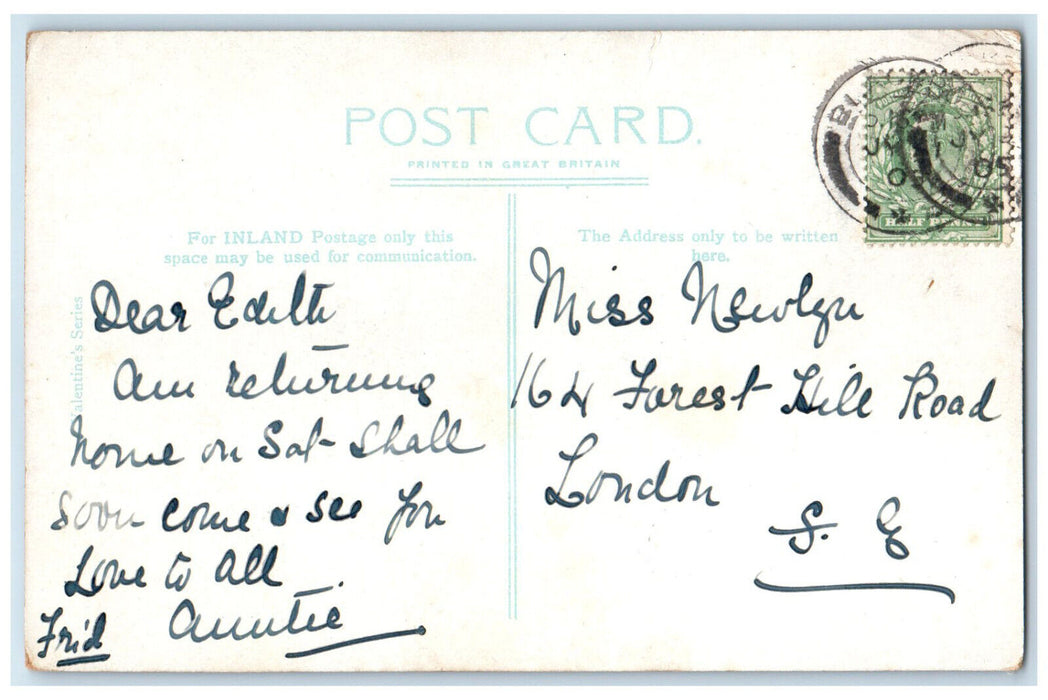 POST CARD.
PRINTED IN GREAT BRITAIN
For INLAND Postage only this
space may be used for communication.
The Address only to be written
here.
Valentine's Series
Dear Edith
Am returning
home on Sat- Shall
soon come & see you
Love to all
Auntie
Frid
Miss Newlyn
164 Forest Hill Road
London
S. E
HALF PENNY
05